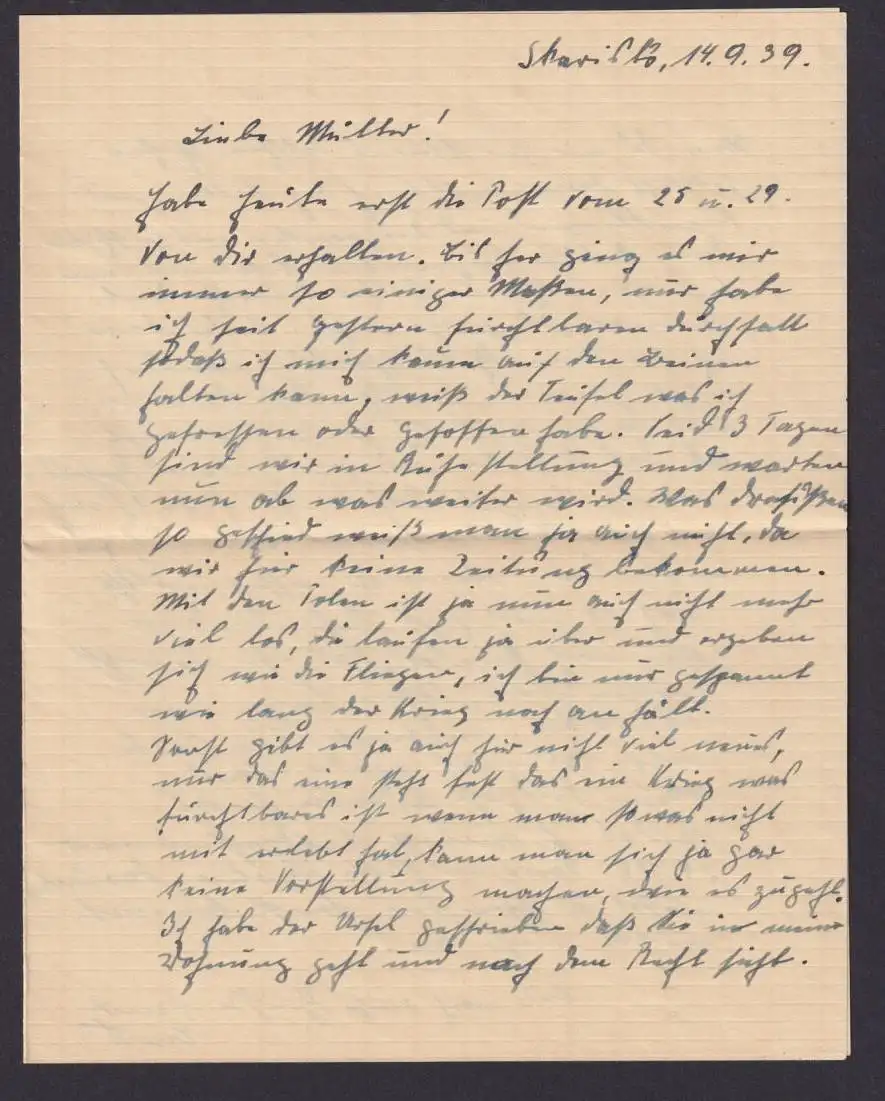 Skarisko, 14.9.39.
Liebe Mutter!
Habe heute erst die Post vom 25 u. 29.
von dir erhalten. Bis her ging es mir
immer so einiger Maßen, nur habe
ich seit gestern furchtbaren durchfall
sodaß ich mich kaum auf den Beinen
halten kann, weiß der Teufel was ich
gefressen oder gesoffen habe. Seid 3 Tagen
sind wir in Ruhe stellung und warten
nun ab was weiter wird. Was draußen
so geschied weiß man ja auch nicht, da
wir hier keine Zeitung bekommen.
Mit den Polen ist ja nun auch nicht mehr
viel los, die laufen ja über und ergeben
sich wie die Fliegen, ich bin nur gespannt
wie lang der Krieg noch an hält.
Sonst gibt es ja auch hier nicht viel neues,
nur das eine steht fest das ein Krieg was
furchtbares ist wenn man sowas nicht
mit erlebt hat, kann man sich ja gar
keine Vorstellung machen, wie es zugeht.
Ich habe der Ursel geschrieben daß Sie in meine
Wohnung geht und nach dem Recht sieht.